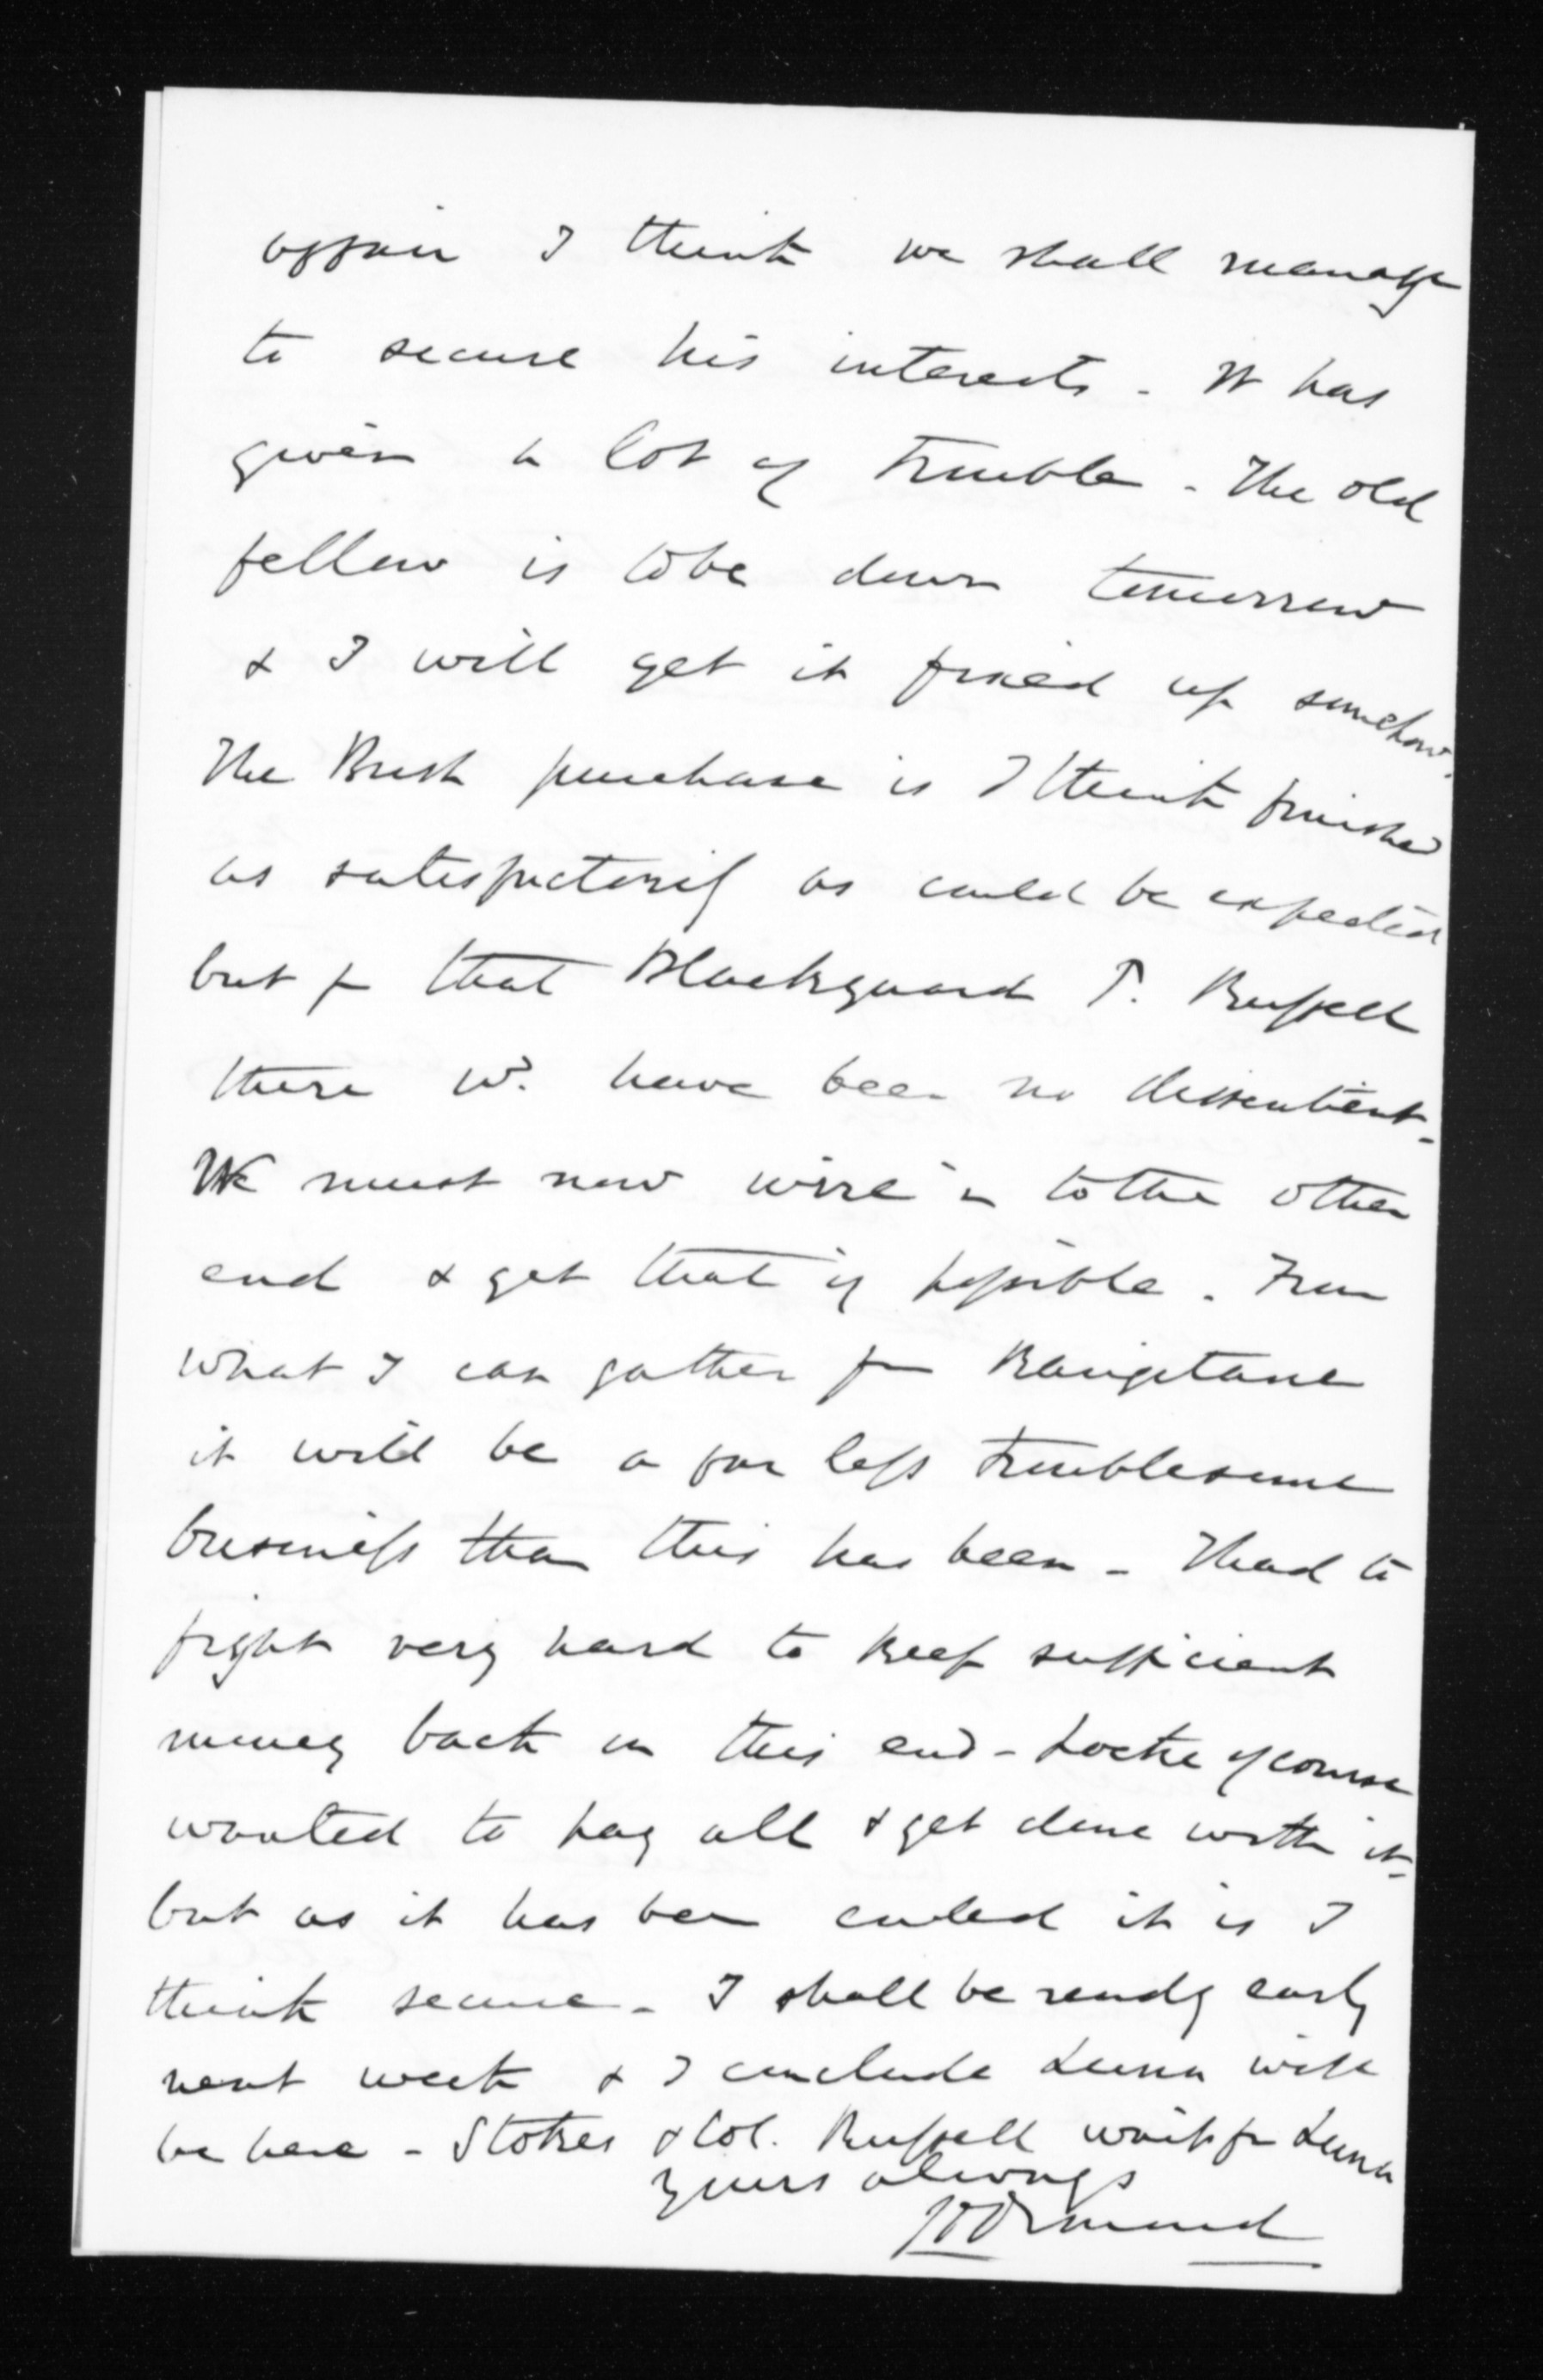 affair I think we shall manage
to secure his interests - It has
given a lot of trouble - The old
fellow is to be down tomorrow
& I will get it fixed up somehow.
The Bush purchase is I think finished
as satisfactorily as could be expected
but for that Blackguard T. Russell
there wd. have been no dissentient -
We must now wire in to the other
end & get that if possible. From
what I can gather from Rangitane
it will be a far less troublesome
business than this has been - I had to
fight very hard to keep sufficient
money back on this end - Locke of course
wanted to pay all & get done with it -
but as it has been ended it is I
think secure - I shall be ready early
next week & I conclude Luna will
be here - Stokes & Col. Russell wait for Luna
Yours always
JD Ormond